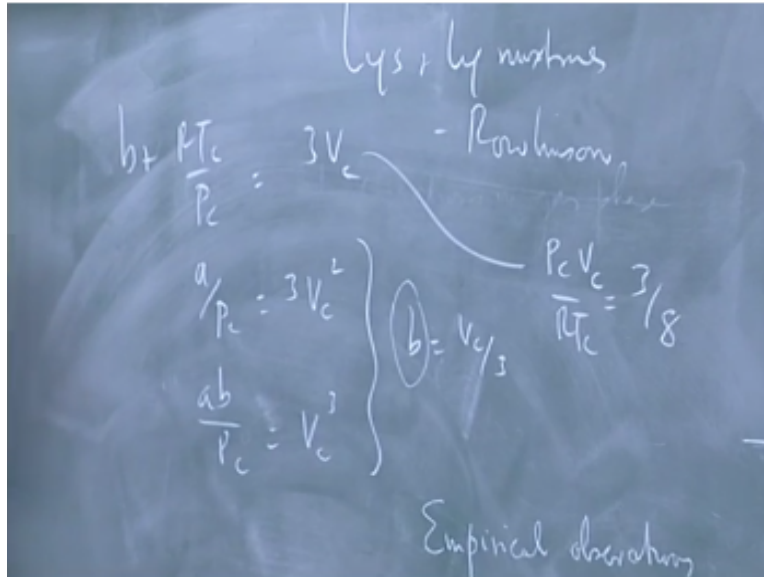 lys + ly mixtures
- Rowlinson,
b + RTc/Pc = 3Vc
a/Pc = 3Vc²
ab/Pc = Vc³
b = Vc/3
PcVc/RTc = 3/8
Empirical observations